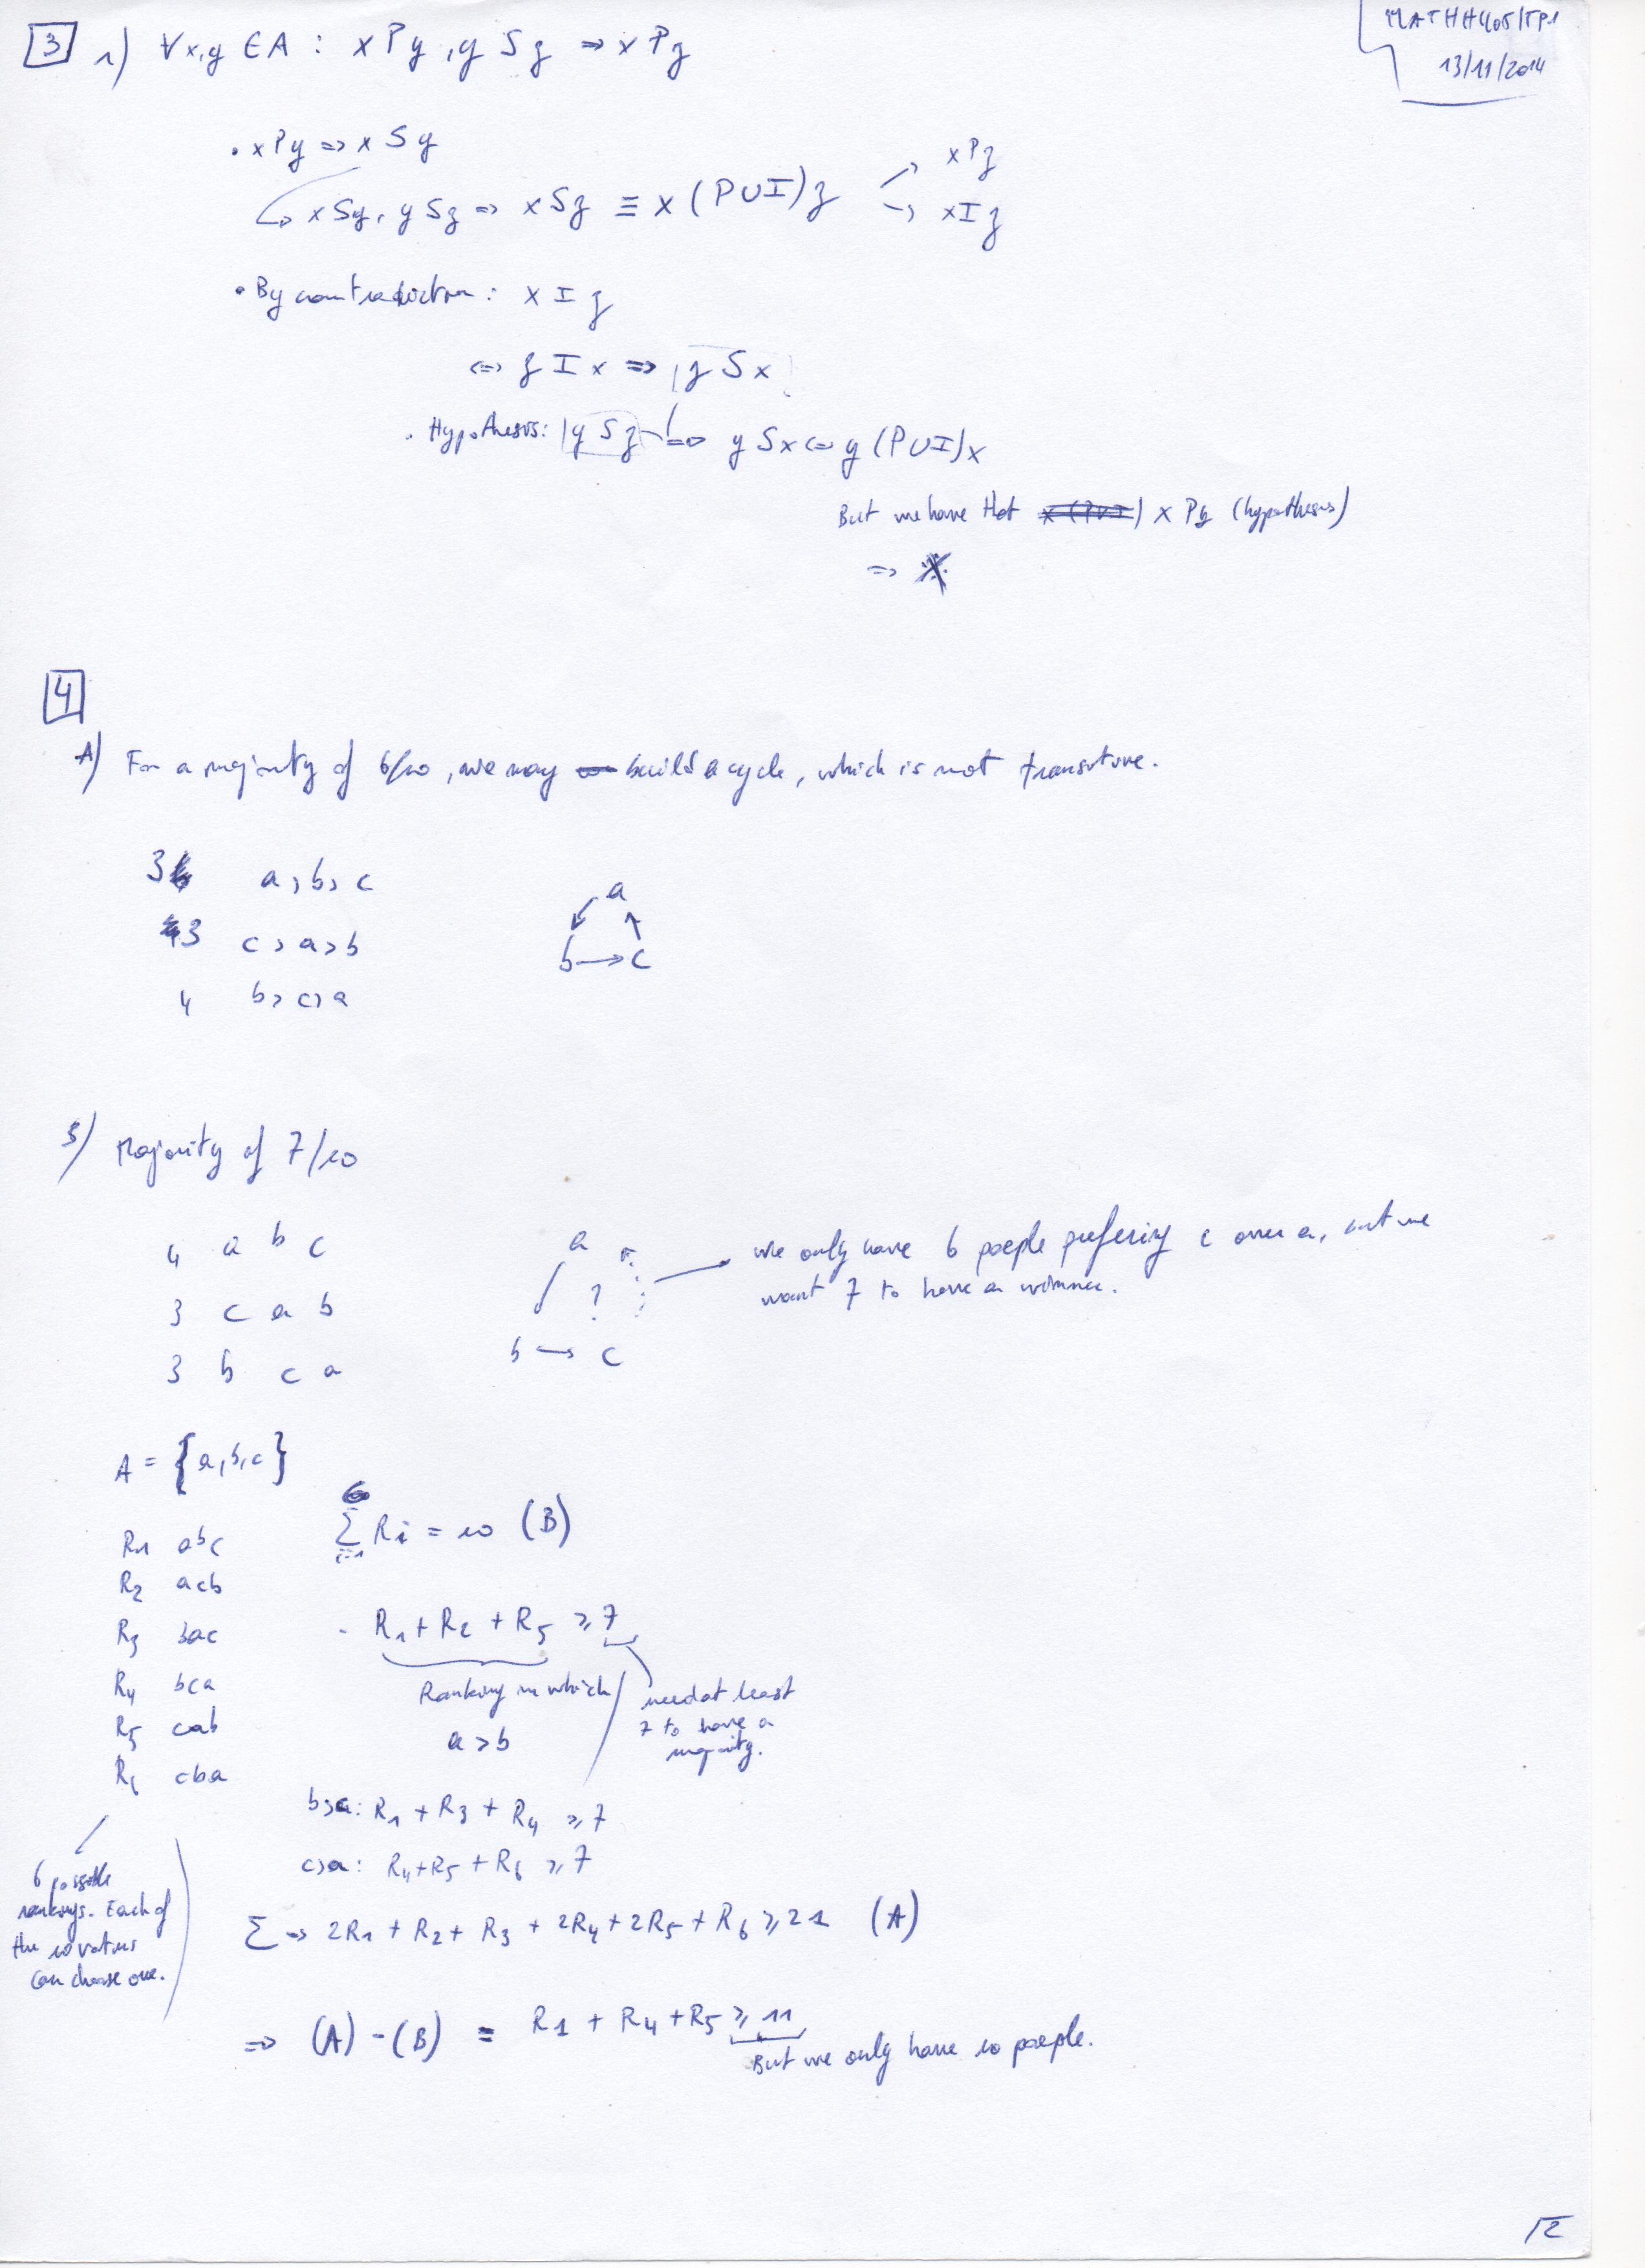 MATHH405/TP1
13/11/2014
3 1) ∀x,y ∈ A : x P y, y S z ⇒ x P z
• x P y ⇒ x S y
↳ x S y, y S z ⇒ x S z ≡ x (P ∪ I) z → x P z
→ x I z
• By contradiction : x I z
⇔ z I x ⇒ z S x
• Hypothesis: y S z ⇒ y S x ⇔ y (P ∪ I) x
But we have that x P y (hypothesis)
⇒
4
A) For a majority of 6/10, we may build a cycle, which is not transitive.
3 a > b > c
3 c > a > b
4 b > c > a
a
b → c
B) Majority of 7/10
4 a b c
3 c a b
3 b c a
a
?
b → c
we only have 6 people prefering c over a, but we
want 7 to have a winner.
A = {a, b, c}
R1 abc
R2 acb
R3 bac
R4 bca
R5 cab
R6 cba
6 possible
rankings. Each of
the 10 voters
can choose one.
6
∑ Ri = 10 (B)
i=1
- R1 + R2 + R5 ≥ 7
Ranking in which
a > b
need at least
7 to have a
majority.
b>c: R1 + R3 + R4 ≥ 7
c>a: R4 + R5 + R6 ≥ 7
∑ → 2R1 + R2 + R3 + 2R4 + 2R5 + R6 ≥ 21 (A)
⇒ (A) - (B) = R1 + R4 + R5 ≥ 11
But we only have 10 people.